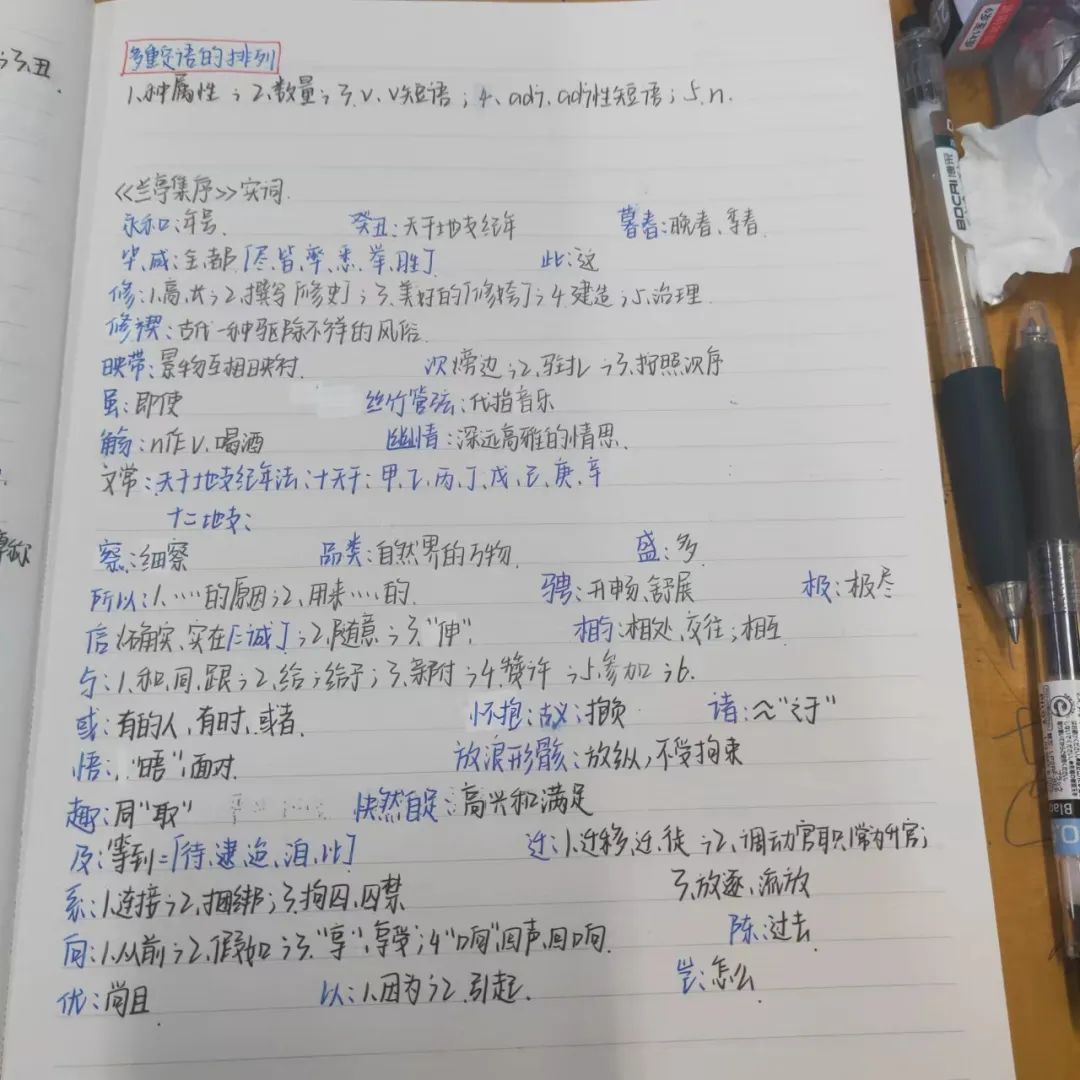 多重定语的排列
1、种属性；2、数量；3、v、v短语；4、adj、adj性短语；5、n.
《兰亭集序》实词.
永和：年号. 癸丑：天干地支纪年 暮春：晚春、季春.
毕、咸：全、都「尽、皆、率、悉、举、胜」 此：这
修：1.高、长；2、撰写「修史」；3、美好的「修姱」；4.建造；5.治理.
修禊：古代一种驱除不祥的风俗.
映带：景物互相映衬. 次 旁边；2、驻扎；3、按照次序
虽：即使 丝竹管弦：代指音乐
觞：n作v.喝酒 幽情：深远高雅的情思.
文常：天干地支纪年法：十天干：甲、乙、丙、丁、戊、己、庚、辛
十二地支：
察：细察 品类：自然界的万物. 盛：多
所以：1、……的原因；2、用来……的. 骋：开畅、舒展 极：极尽
信 确实、实在「=诚」；2、随意；3、"伸". 相与：相处、交往；相互
与：1、和、同、跟；2、给；给予；3、亲附；4.赞许；5.参加；6.
或：有的人、有时、或者. 怀抱：古义：抱负 诸：≈"之于"
悟："晤"，面对. 放浪形骸：放纵，不受拘束
趣：同"取" 快然自足：高兴和满足
及：等到=「待、逮、迨、洎、比」 迁：1、迁移、迁徙；2、调动官职(常为升官；
系：1.连接；2、捆绑；3.拘囚、囚禁 3.放逐、流放
向：1.从前；2、假如；3、"享"，享受；4"响"回声、回响. 陈：过去.
优：尚且 以：1.因为；2.引起. 岂：怎么.
BOCRI
Blac